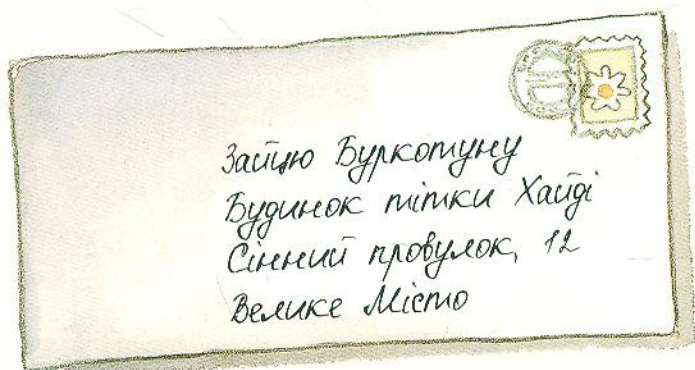 Зайцю Буркотуну
Будинок тітки Хайді
Сінний провулок, 12
Велике Місто